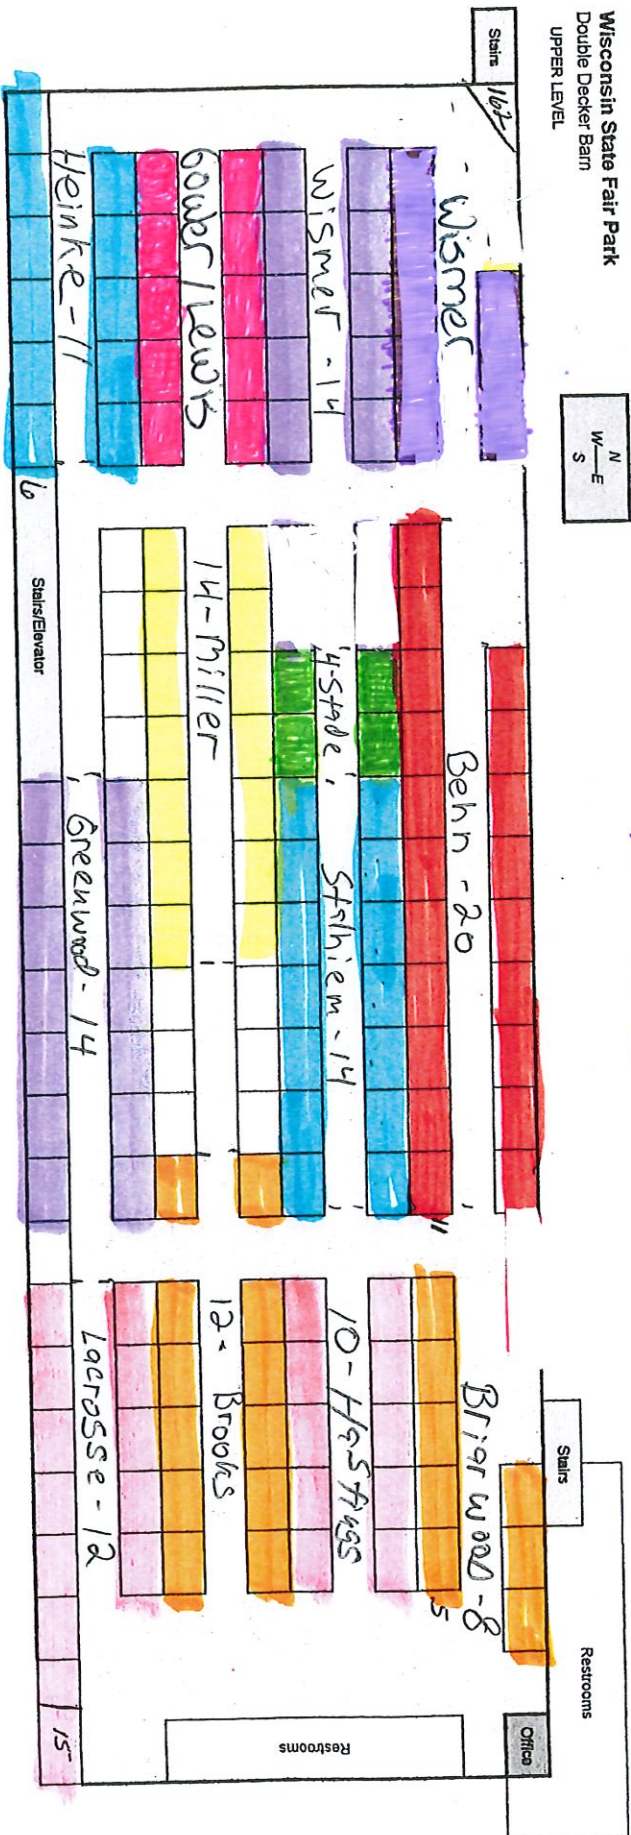 Wisconsin State Fair Park
Double Decker Barn
UPPER LEVEL
N
W—E
S
Stairs
162
Wismer
Wismer - 14
Gower/Lewis
Heinke - 11
6
Stairs/Elevator
Behn - 20
11
4-Stade
Stalhiem - 14
14-Miller
Greenwood - 14
Briarwood - 8
5
10 - Hastings
12 - Brooks
Lacrosse - 12
15
Stairs
Restrooms
Office
Restrooms